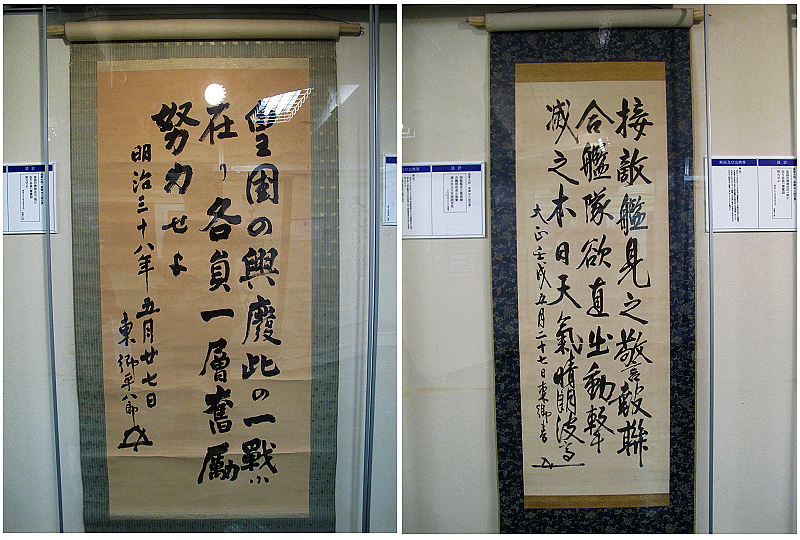 皇國の興廢此の一戰に
在り各員一層奮励
努力せよ
明治三十八年五月廿七日
東郷平八郎
接敵艦見之警報聯
合艦隊欲直出動撃
滅之本日天氣晴朗波高
大正壬戌五月二十七日東郷書